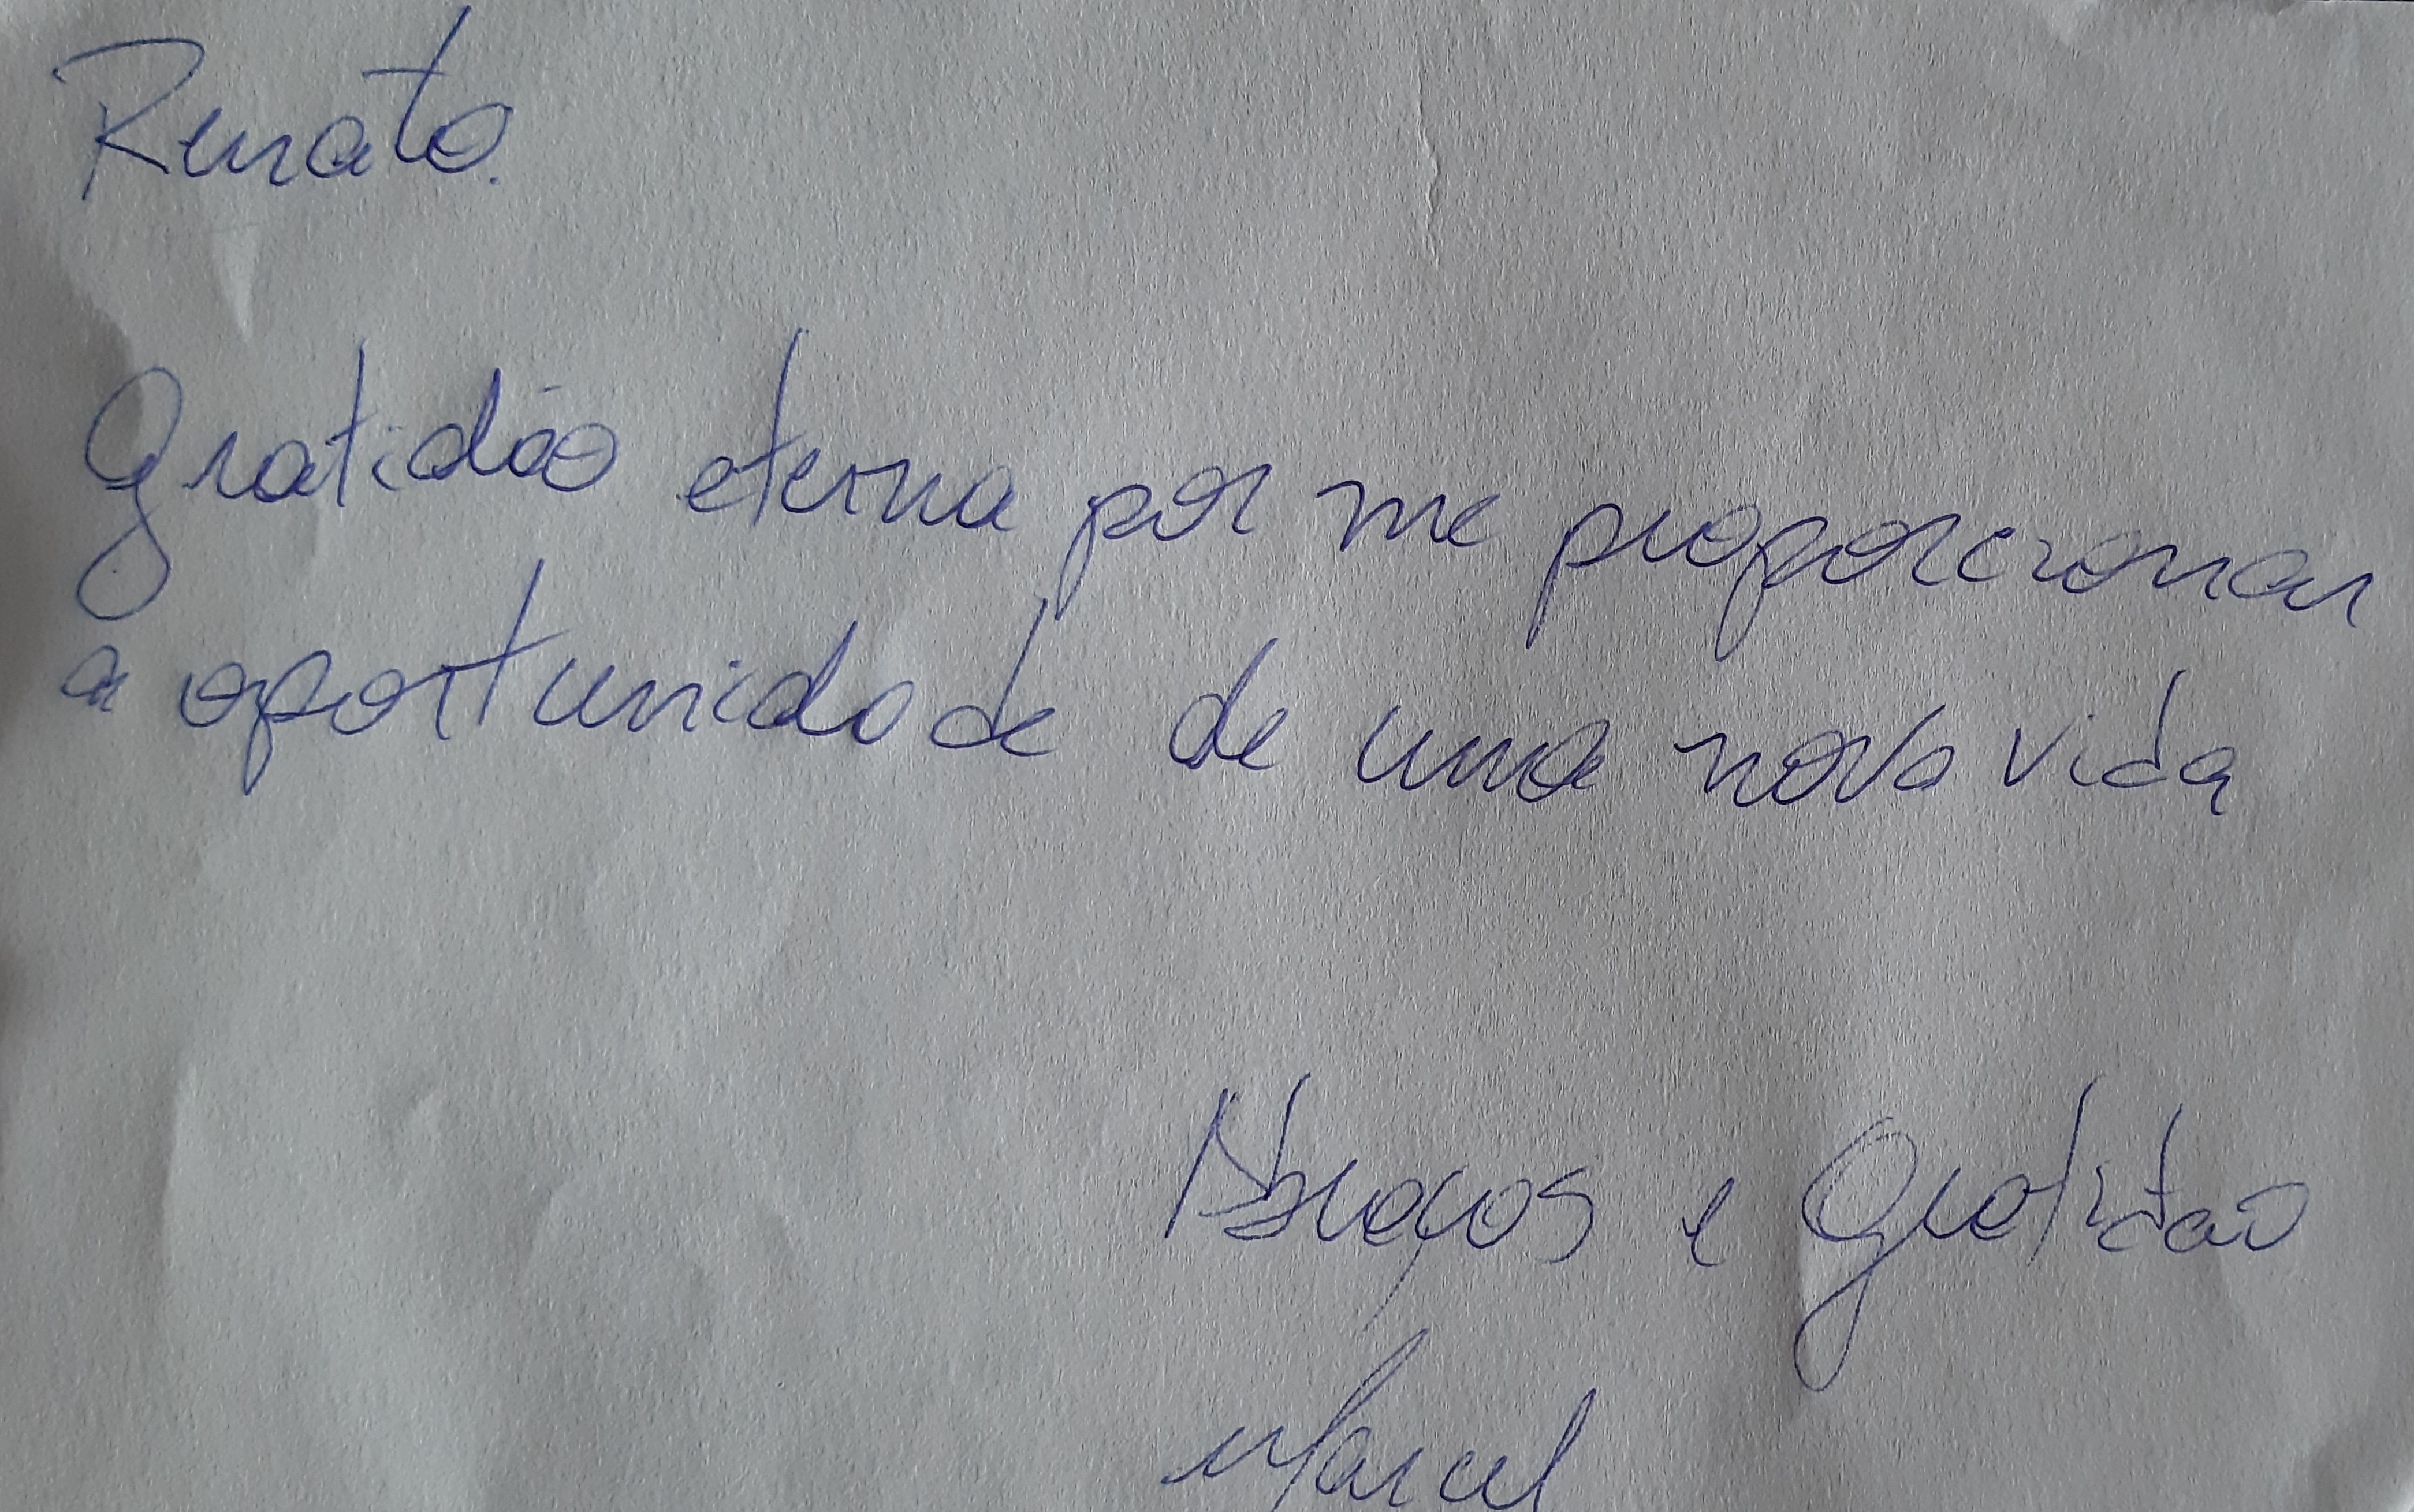 Renato.
Gratidão eterna por me proporcionar
a oportunidade de uma nova vida
Abraços e Gratidão
Marcel